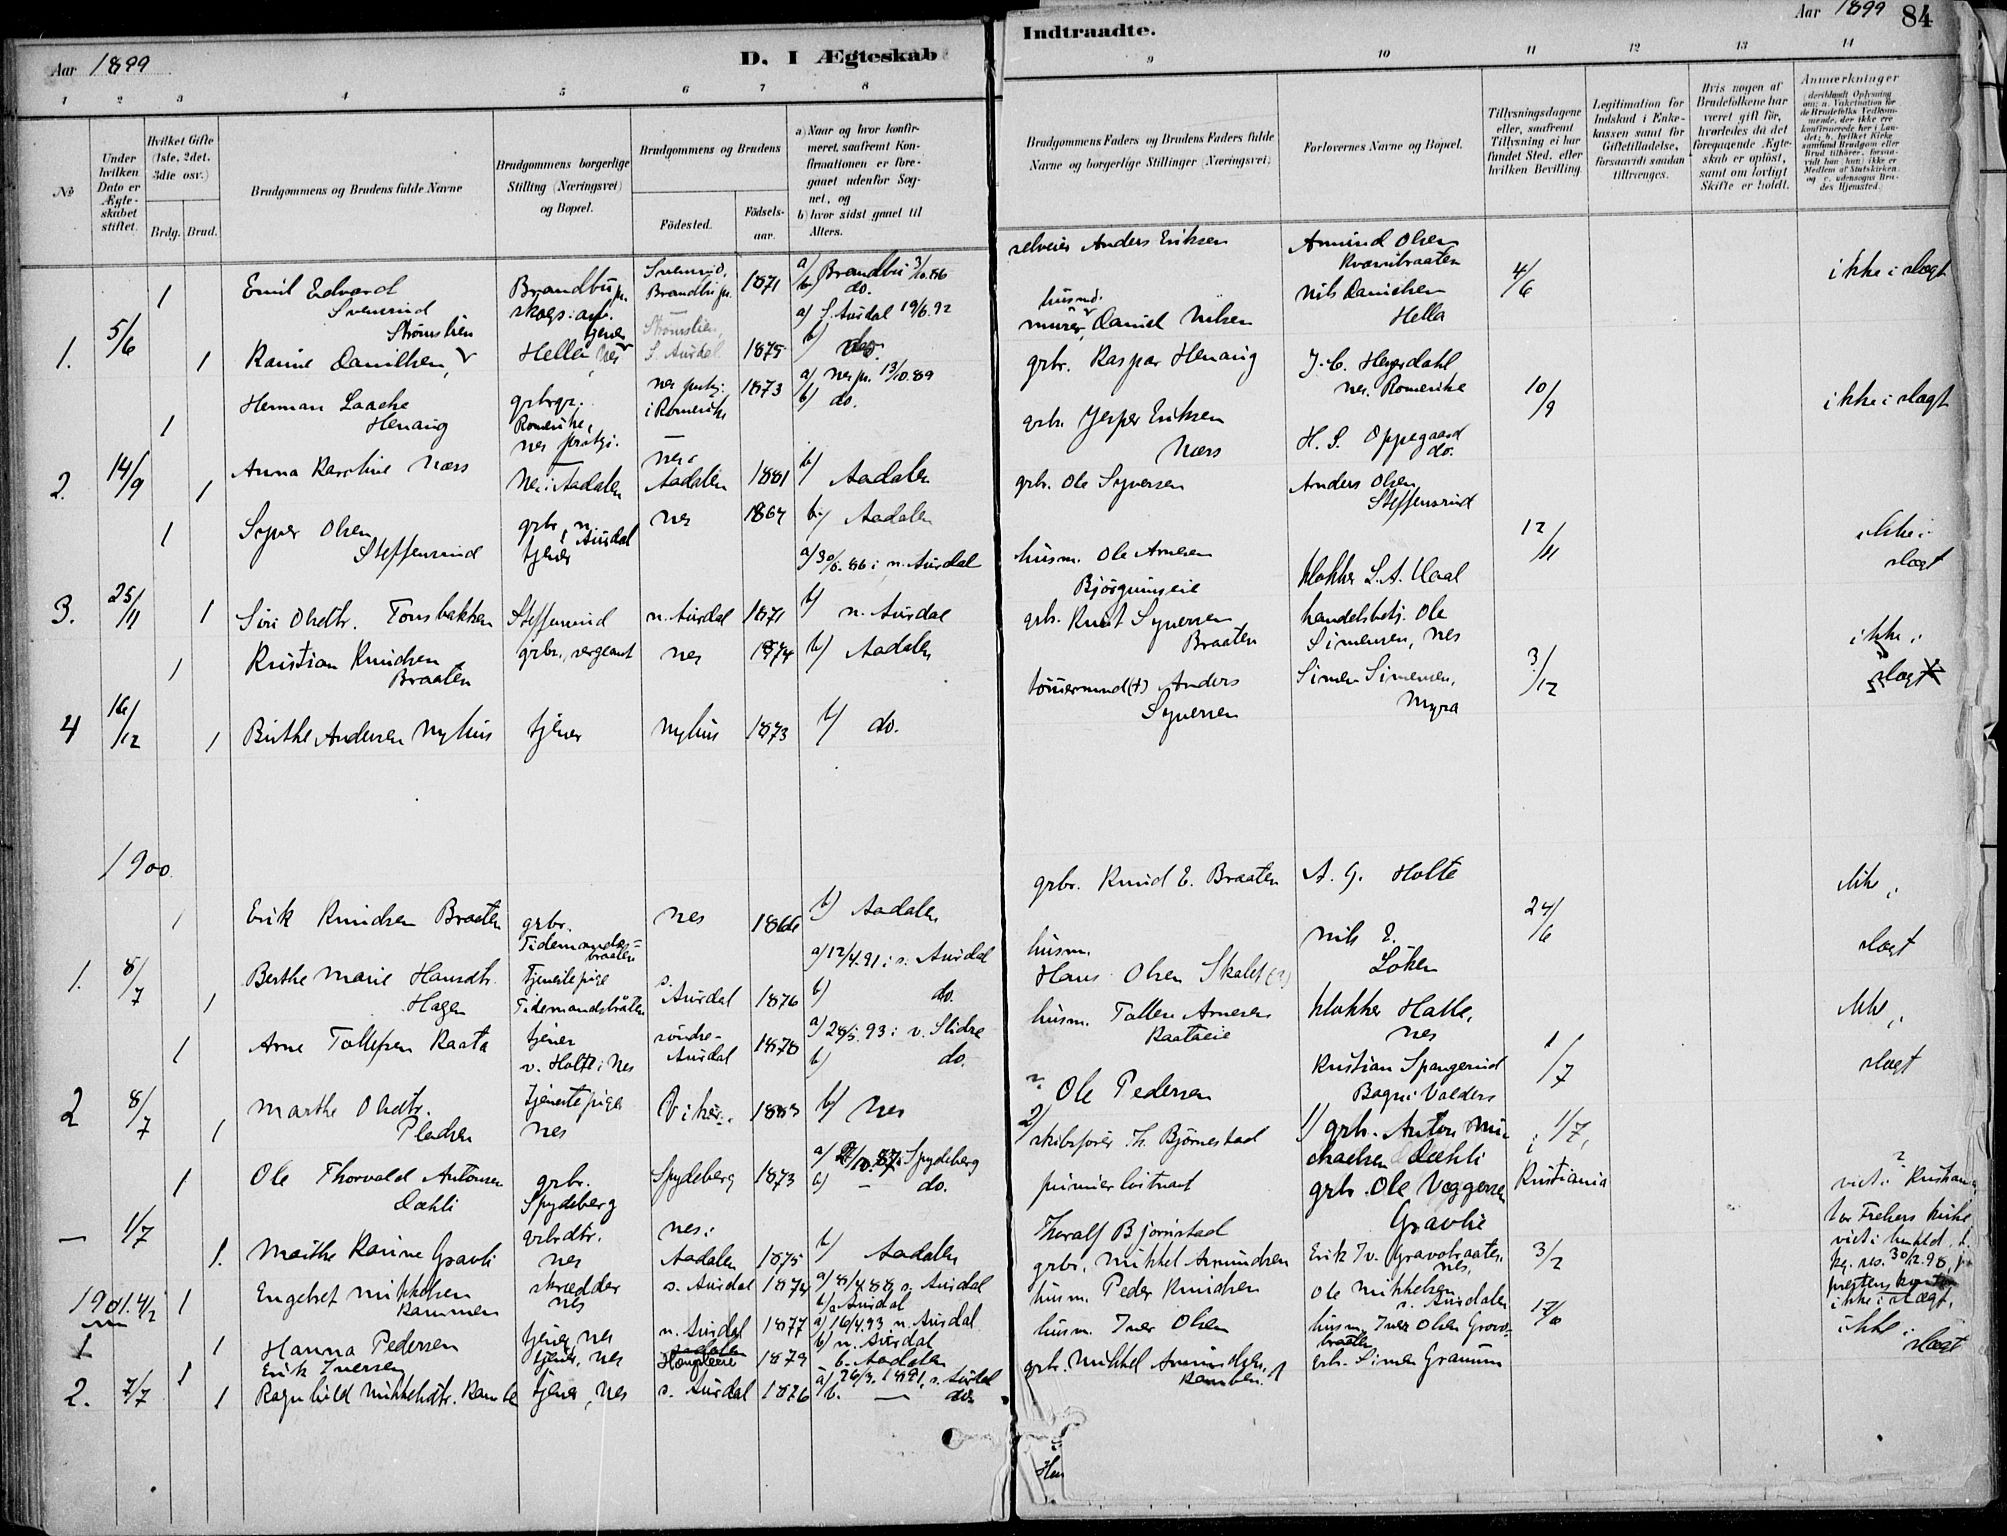 Aar 1899
D. I Ægteskab
1 2 3 4 5 6 7 8
No
Under hvilken Dato er Ægteskabet stiftet.
Hvilket Gifte (1ste, 2det, 3die osv.)
Brdg. Brud.
Brudgommens og Brudens fulde Navne
Brudgommens borgerlige Stilling (Næringsvei) og Bopæl.
Brudgommens og Brudens
Födested.
Födsels-aar.
a) Naar og hvor konfir-
meret, saafremt Kon-
firmationen er fore-
gaaet udenfor Sog-
net, og
b) hvor sidst gaaet til
Alters.
1 Emil Edvard Brandbu p. Svenrud, 1871 a) Brandbu 3/10.86
Svenrud skogs.arb. Brandbu p. b) do.
1. 5/6 Strømslien tjener Strømslien, a) S. Aurdal 19/6.92
1 Karine Danielsen, Hella, Nes S. Aurdal 1875 b) do.
1 Herman Laache grbr. nes prstgj. 1873 a) nes p. 13/10.89
Henaug Romerike, i Romerike b) do.
nes prstgj.
2. 14/9 1 Anna Karoline Næss Nes i Aadalen Aadalen 1881 b) Aadalen
1 Syver Olsen grbr. nes 1867 b) Aadalen
Steffensrud tjener, n. Aurdal
a) 3/6.86 i n. Aurdal
3. 25/11 1 Siri Olsdtr. Tonsbakken Steffensrud n. Aurdal 1871 b) n. Aurdal
1 Kristian Knudsen grbr., sergeant nes 1874 b) Aadalen
Braaten
4 16/12 1 Birthe Andersen Nyhus tjener Nyhus 1873 b) do.
1900
1 Erik Knudsen Braaten grbr. nes 1866 b) Aadalen
Tidemands-
braaten
a) 12/4.91 i s. Aurdal
1. 8/7 1 Berthe Marie Hansdtr. Tjenestepige s. Aurdal 1876 b) do.
Hagen Tidemandsbråten
1 Arne Tollefsen Raata tjener søndre- 1870 a) 28/5.93 i v. Slidre
v. Holte i Nes Aurdal b) do.
2 8/7 1 Marthe Olsdtr. Tjenestepige Viker 1883 b) Nes
Pladsen nes
1 Ole Thorvald Antonsen grbr. Spydeberg 1873 a) Spydeberg
Dæhli Spydeberg b) — do.
— 1/7 grbrdtr. nes i
1. Marthe Karine Gravli nes Aadalen 1875 b) Aadalen
1901. 4/2 1 Engebret Mikkelsen skrædder s. Aurdal 1874 a) 8/4.88 s. Aurdal
Rammen nes b) s. Aurdal
1 1 Hanna Pedersen tjener, nes n. Aurdal 1877 a) 16/4.93 n. Aurdal
b) n. Aurdal
1 Erik Iversen tjener, nes 1879 b. Aadalen
2. 7/7 1 Ragnhild Mikkelsdtr. tjener, nes s. Aurdal 1876 a) 26/3. 1891, s. Aurdal
b. — do.
Indtraadte.
Aar 1899 84
9 10 11 12 13 14
Brudgommens Faders og Brudens Faders fulde
Navne og borgerlige Stillinger (Næringsvei)
Forlovernes Navne og Bopæl.
Tillysningsdagene
eller, saafremt
Tillysning ei har
fundet Sted, efter
hvilken Bevilling.
Legitimation for
Indskud i Enke-
kassen samt for
Giftetilladelse,
forsaavidt saadan
tiltrænges.
Hvis nogen af
Brudefolkene har
været gift før,
hvorledes da det
foregaaende Ægte-
skab er opløst,
samt om lovligt
Skifte er holdt.
Anmærkninger
(deriblandt Oplysning
om: a. Vakcination for
de Brudefolks Vedkom-
mende, der ikke ere
konfirmerede her i Lan-
det; b. hvilket Kirke-
samfund Brudgom eller
Brud tilhører, forsaa-
vidt han (hun) ikke er
Medlem af Statskirken,
og c. udensogns Bru-
des Hjemsted.)
selveier Anders Eriksen Amund Olsen
Kværnbraaten 4/6 ikke i slægt
husmd. Nils Danielsen
murer Daniel Nilsen Hella
grbr. Kaspar Henaug J. C. Heyerdahl
nes. Romerike 10/9 ikke i slægt
grbr. Jesper Eriksen H. S. Oppegaard
Næss do.
grbr. Ole Syversen Anders Olsen
Steffensrud
12/11 ikke i
slægt
husm. Ole Arnesen
Bjørgumseie klokker L. A. Uaal
grbr. Knut Syversen handelsbetj. Ole
Braaten Simensen, nes ikke i
tømmermd (+) Anders Simen Simensen, 3/12 slægt
Syversen Myra
grbr. Knud E. Braaten A. G. Holte ikke i
24/6
husm. Nils E. slægt
Hans Olsen Skalet (?) Løken
husm. Tollev Arnesen klokker Halle, ikke i
Raataeie nes
1/7 slægt
? Ole Pedersen Kristian Spangerud
Bagn i Valders
2) skibsfører Th. Bjørnestad 1) grbr. Anton Mi- 1/7,
chaelsen Dæhli i
premierløitnant grbr. Ole Veggersen Kristiania viet i Kristiania
Gravlie Vor Frelsers kirke
Thoralf Bjørnstad
grbr. Mikkel Amundsen Erik Iv. Gravbraaten, 3/2
nes.
husm. Peder Knudsen Ole Mikkelsen ikke i slægt.
s. Aurdalen
husm. Iver Olsen husm. Iver Olsen Grav- ikke i
braaten slægt
grbr. Mikkel Amundsen grbr. Simen Granum